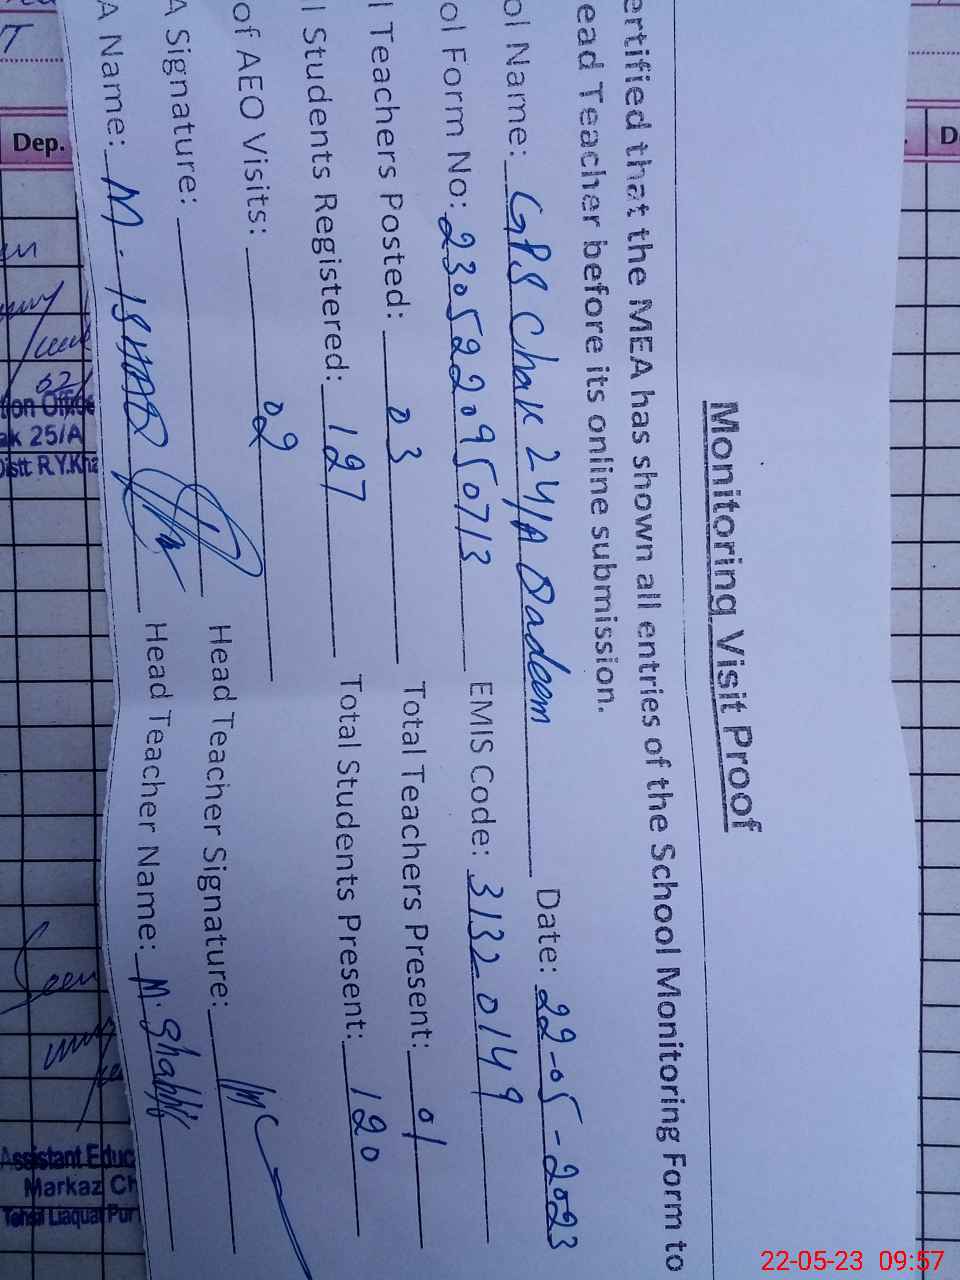 Monitoring Visit Proof
ertified that the MEA has shown all entries of the School Monitoring Form to
ead Teacher before its online submission.
ol Name: GPS Chak 24/A Dadeem Date: 22-05-2023
ol Form No: 2305220950713 EMIS Code: 31320149
l Teachers Posted: 03 Total Teachers Present: 01
l Students Registered: 127 Total Students Present: 120
of AEO Visits: 02
A Signature: Head Teacher Signature:
A Name: M. ISHAQ Head Teacher Name: M. Shabbir
Dep.
D
tion Office
ak 25/A
Distt R.Y.Kha
Seen
Assistant Educ
Markaz Ch
Tehsil Liaquat Pur
22-05-23 09:57